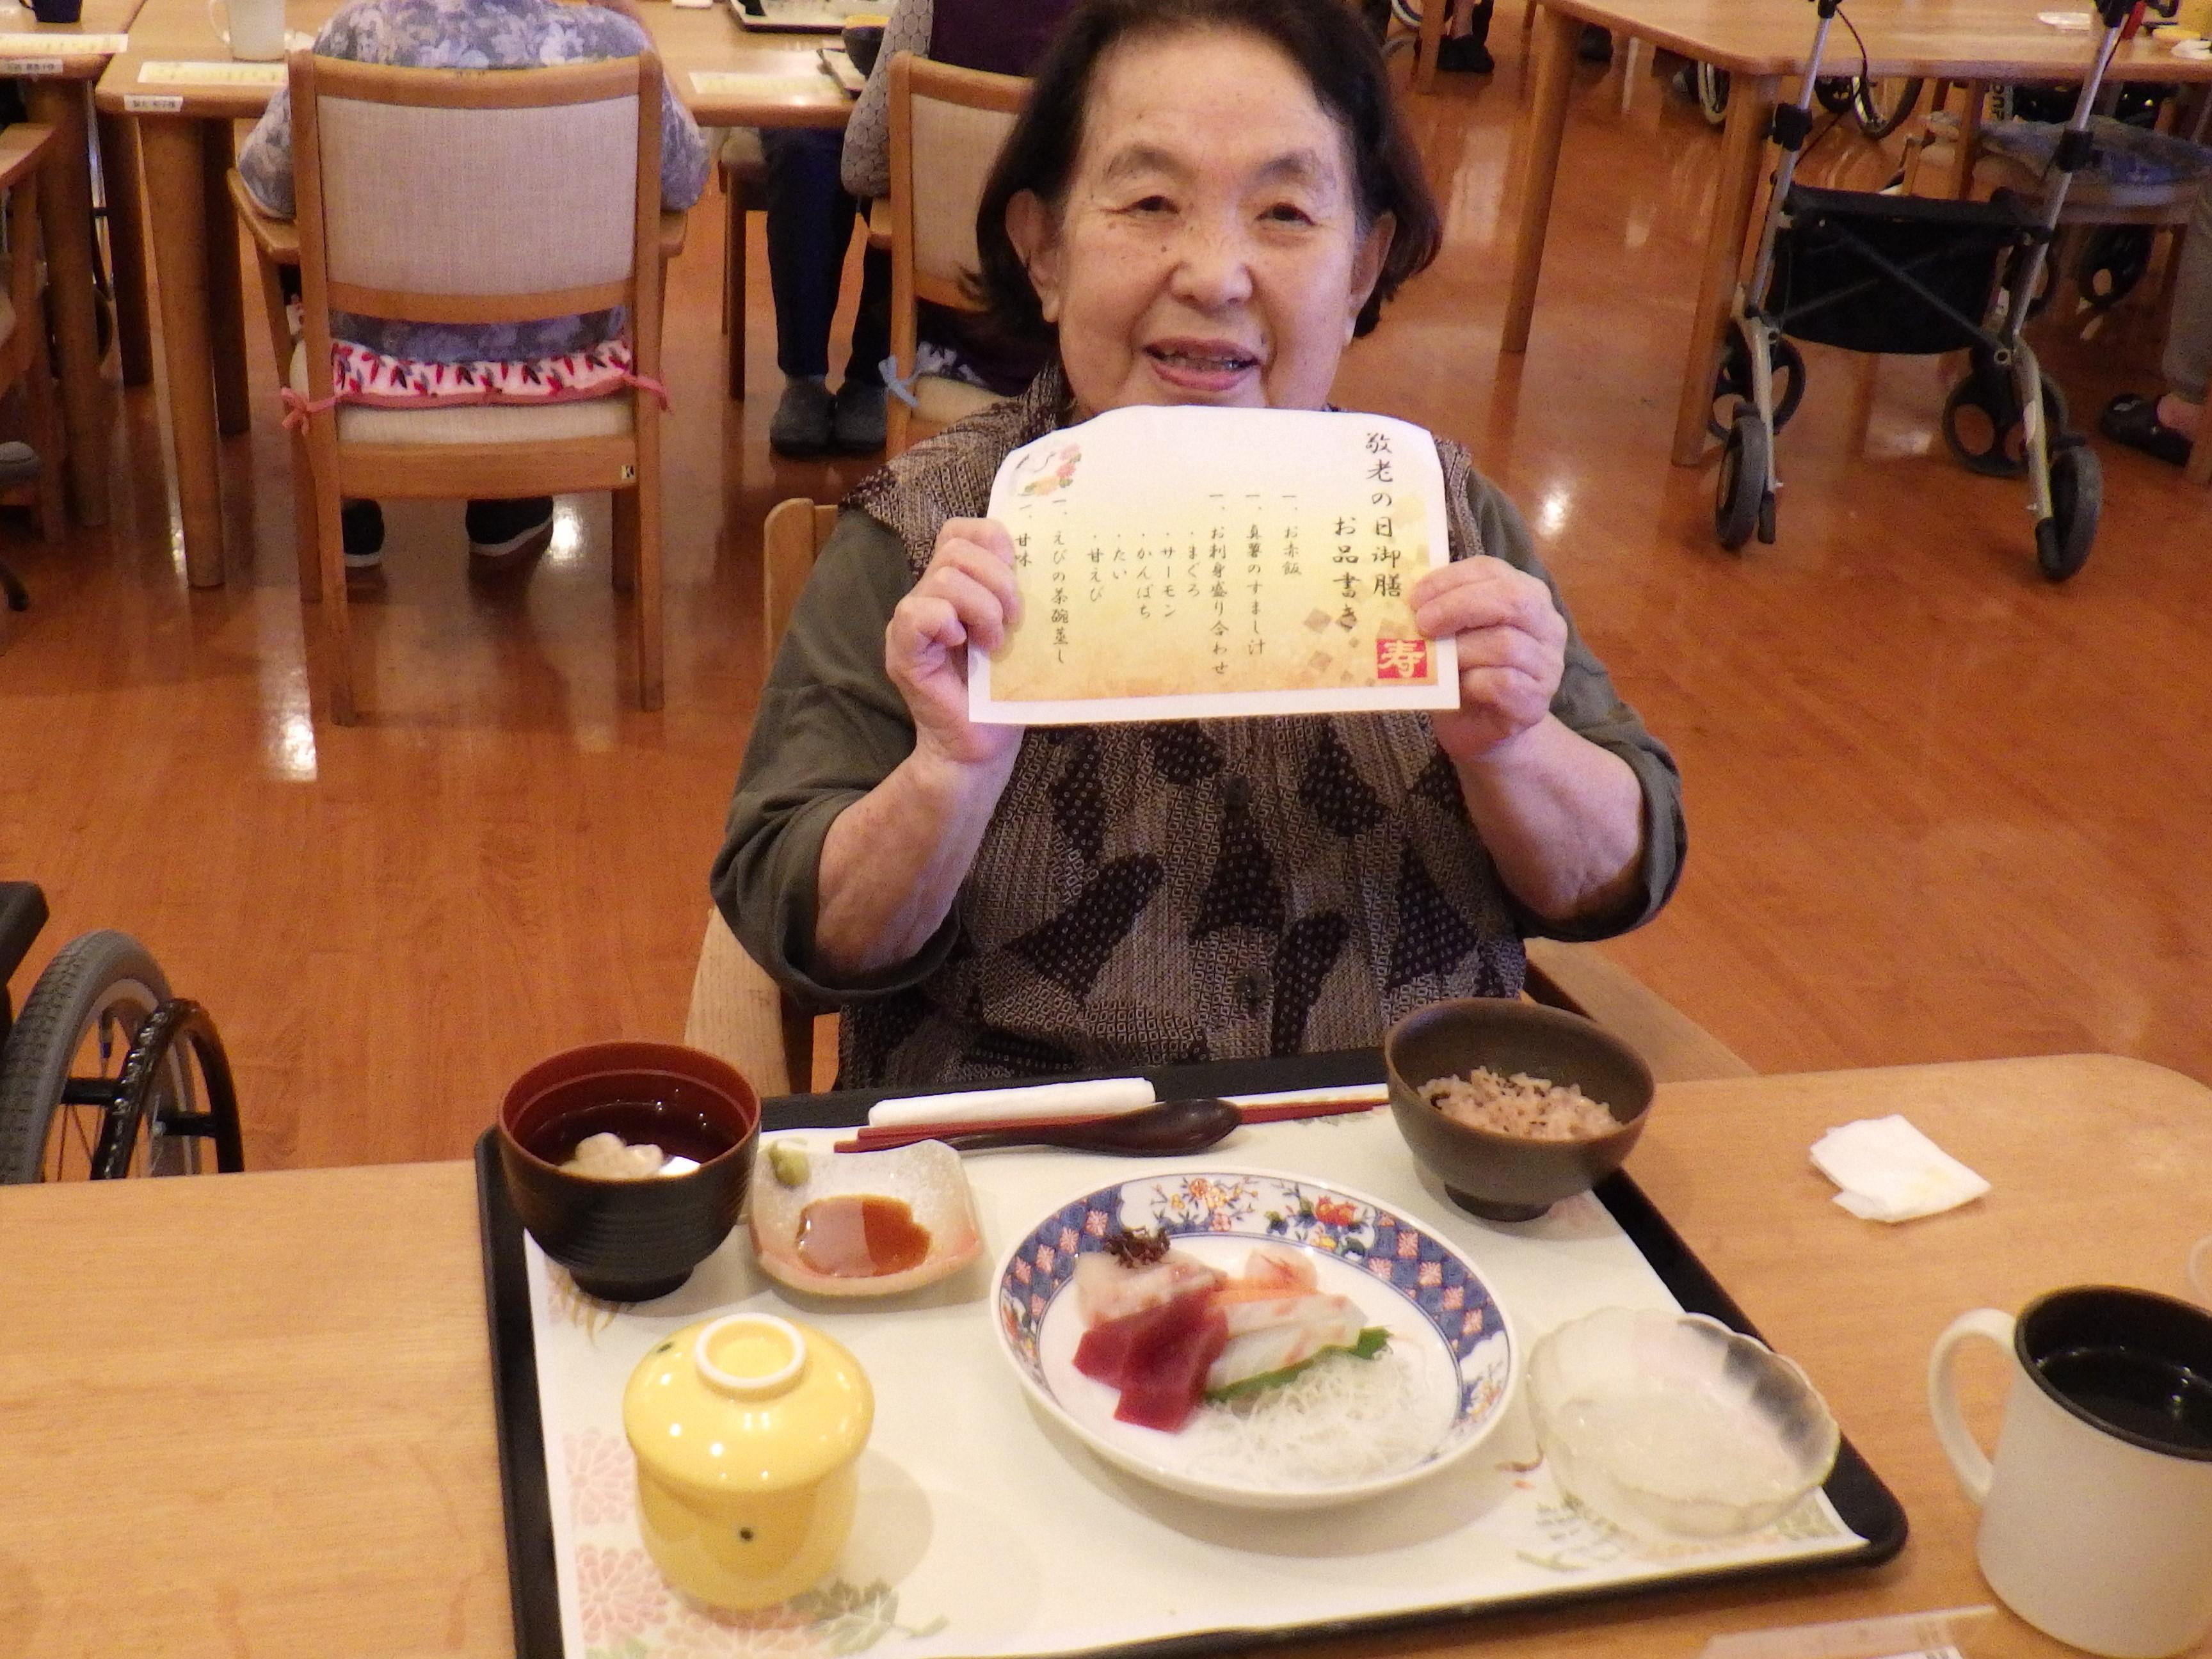 敬老の日御膳
お品書き
寿
一、お赤飯
一、真薯のすまし汁
一、お刺身盛り合わせ
・まぐろ
・サーモン
・かんぱち
・たい
・甘えび
一、えびの茶碗蒸し
一、甘味